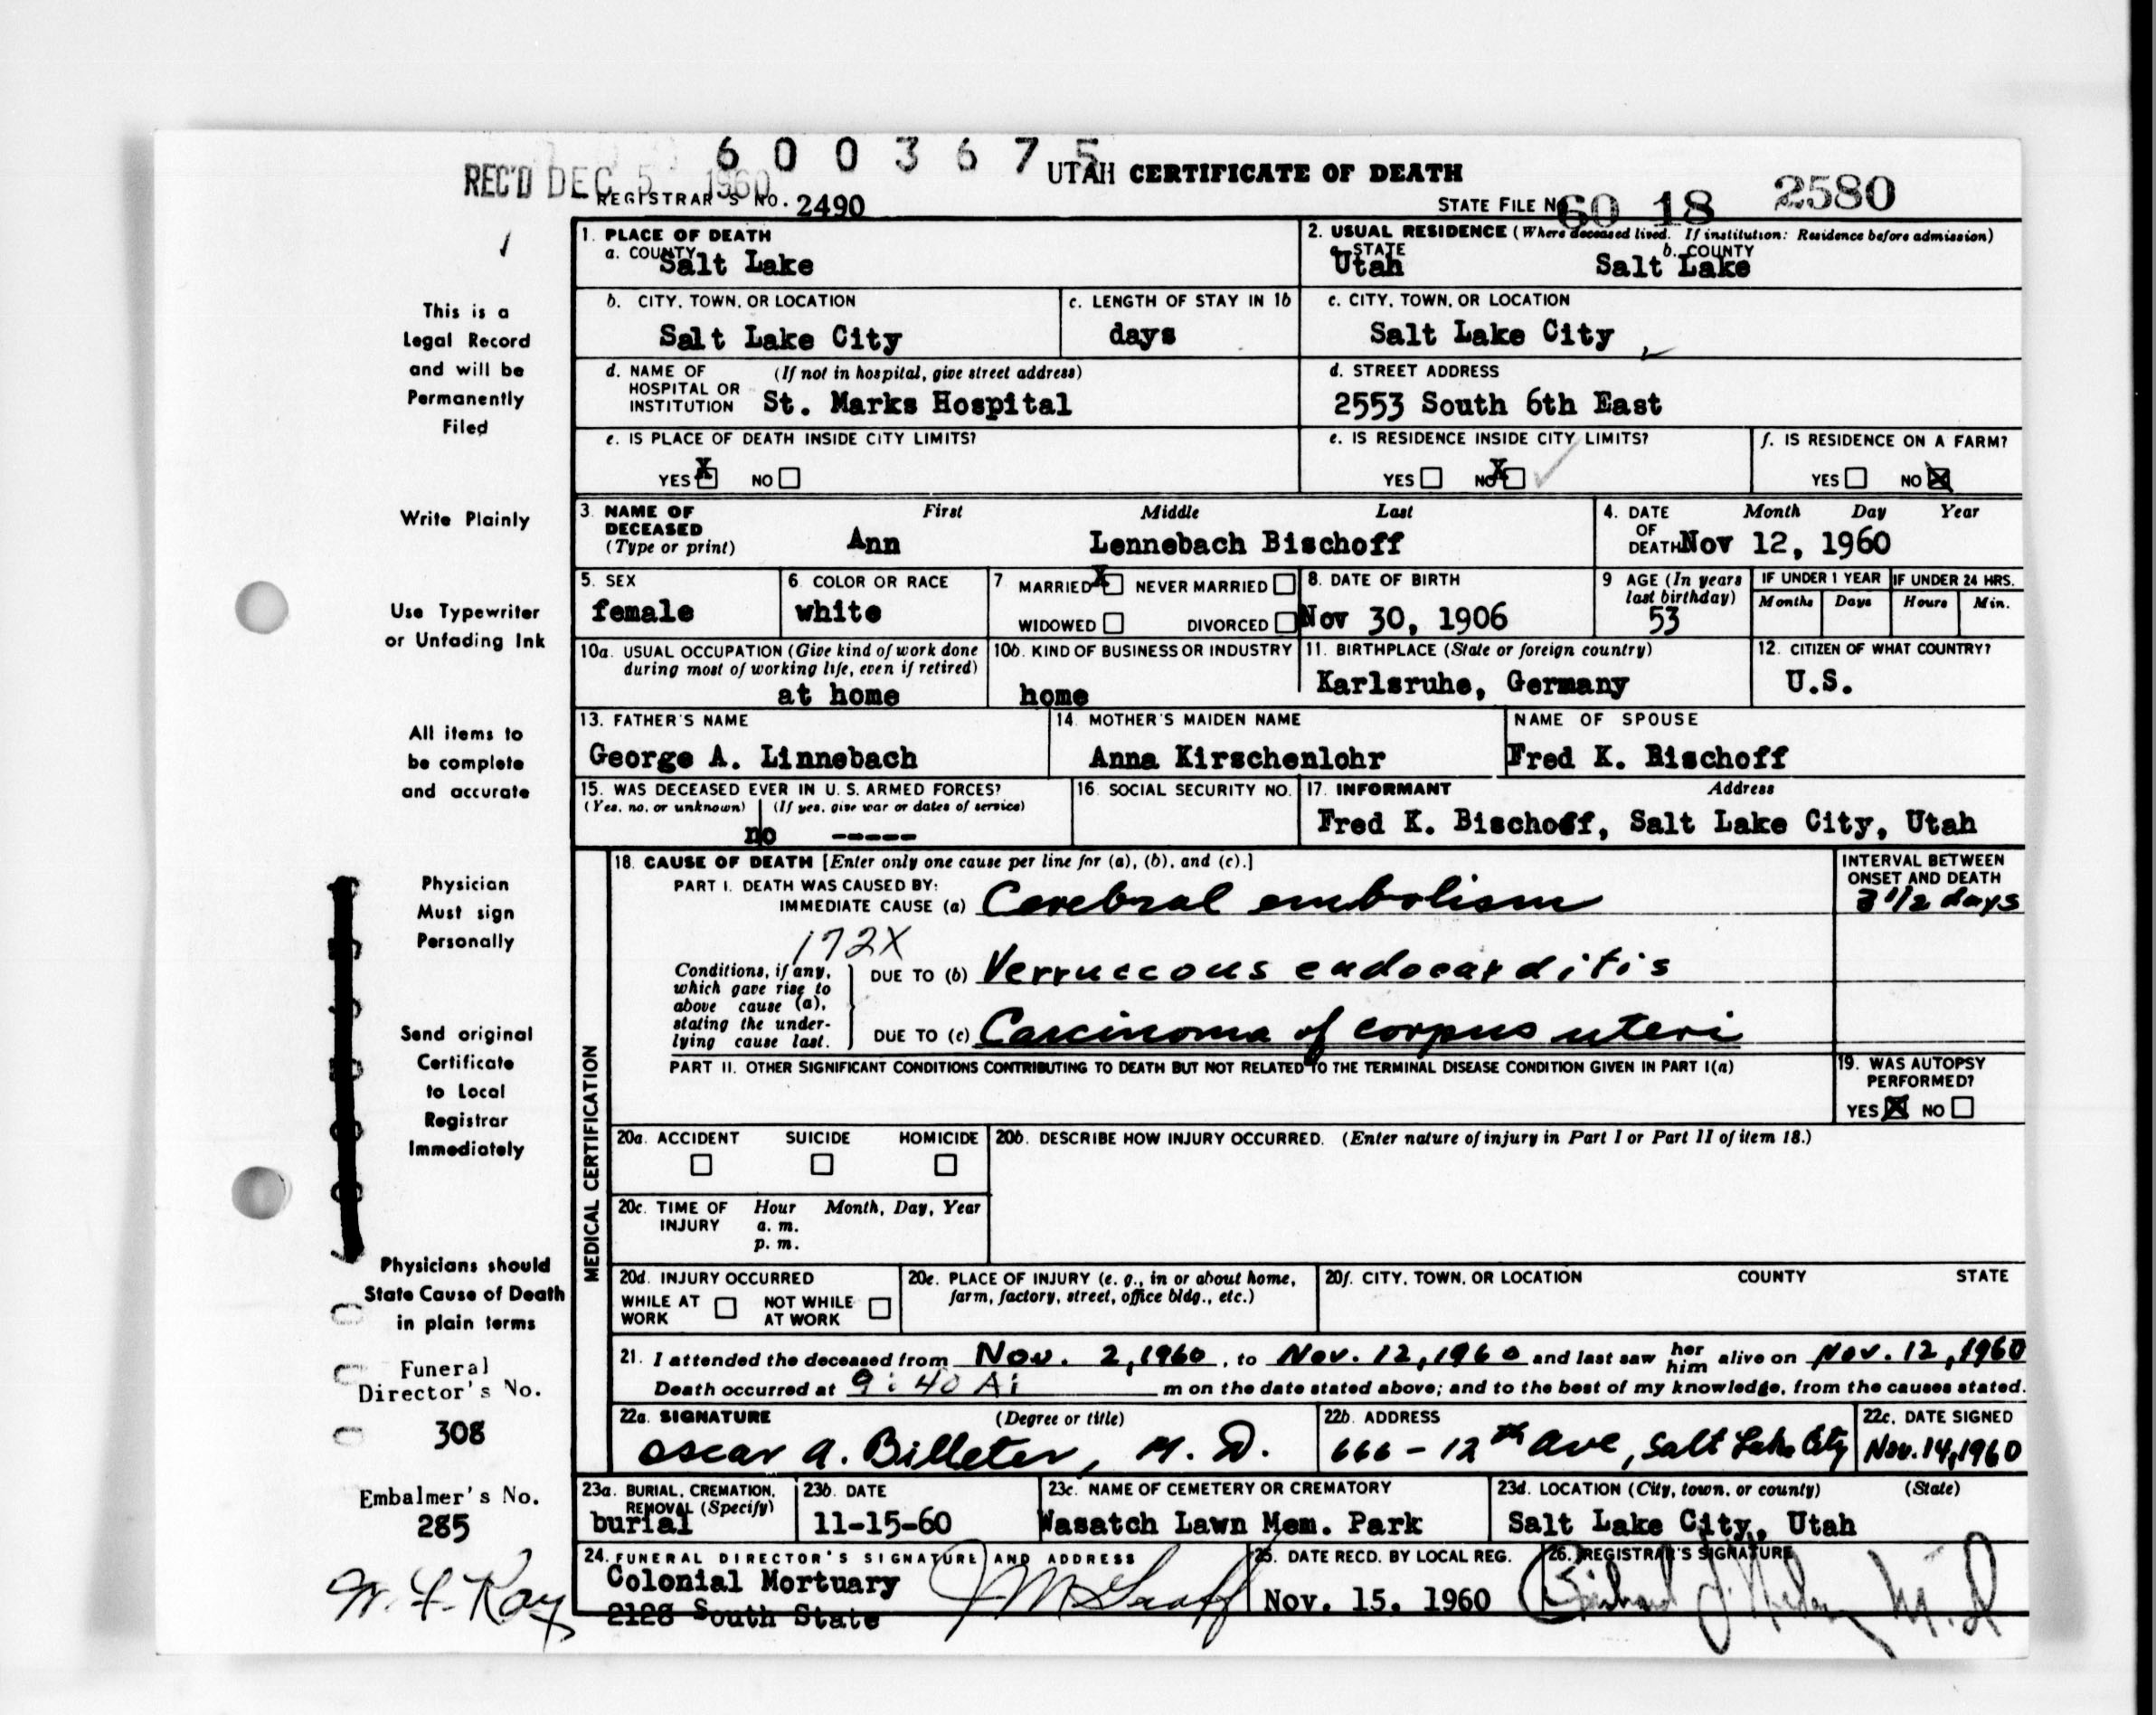 6 0 0 3 6 7 5
REC'D DEC 5 1960
UTAH CERTIFICATE OF DEATH
REGISTRAR'S NO. 2490
STATE FILE NO. 60 18 2580
This is a
Legal Record
and will be
Permanently
Filed
Write Plainly
Use Typewriter
or Unfading Ink
All items to
be complete
and accurate
Physician
Must sign
Personally
Send original
Certificate
to Local
Registrar
Immediately
Physicians should
State Cause of Death
in plain terms
Funeral
Director's No.
308
Embalmer's No.
285
W. F. Ray
1. PLACE OF DEATH
a. COUNTY
Salt Lake
2. USUAL RESIDENCE (Where deceased lived. If institution: Residence before admission)
a. STATE b. COUNTY
Utah Salt Lake
b. CITY, TOWN, OR LOCATION
Salt Lake City
c. LENGTH OF STAY IN 1b
days
c. CITY, TOWN, OR LOCATION
Salt Lake City
d. NAME OF (If not in hospital, give street address)
HOSPITAL OR
INSTITUTION St. Marks Hospital
d. STREET ADDRESS
2553 South 6th East
e. IS PLACE OF DEATH INSIDE CITY LIMITS?
YES X NO
e. IS RESIDENCE INSIDE CITY LIMITS?
YES NO X
f. IS RESIDENCE ON A FARM?
YES NO X
3. NAME OF DECEASED (Type or print)
First Middle Last
Ann Lennebach Bischoff
4. DATE OF DEATH Month Day Year
Nov 12, 1960
5. SEX
female
6. COLOR OR RACE
white
7. MARRIED X NEVER MARRIED
WIDOWED DIVORCED
8. DATE OF BIRTH
Nov 30, 1906
9 AGE (In years last birthday)
53
IF UNDER 1 YEAR
Months Days
IF UNDER 24 HRS.
Hours Min.
10a. USUAL OCCUPATION (Give kind of work done
during most of working life, even if retired)
at home
10b. KIND OF BUSINESS OR INDUSTRY
home
11. BIRTHPLACE (State or foreign country)
Karlsruhe, Germany
12. CITIZEN OF WHAT COUNTRY?
U.S.
13. FATHER'S NAME
George A. Linnebach
14. MOTHER'S MAIDEN NAME
Anna Kirschenlohr
NAME OF SPOUSE
Fred K. Bischoff
15. WAS DECEASED EVER IN U. S. ARMED FORCES?
(Yes, no, or unknown) (If yes, give war or dates of service)
no -----
16. SOCIAL SECURITY NO.
17. INFORMANT Address
Fred K. Bischoff, Salt Lake City, Utah
MEDICAL CERTIFICATION
18. CAUSE OF DEATH [Enter only one cause per line for (a), (b), and (c).]
INTERVAL BETWEEN
ONSET AND DEATH
PART I. DEATH WAS CAUSED BY:
IMMEDIATE CAUSE (a) Cerebral embolism 3 1/2 days
172X
Conditions, if any,
which gave rise to
above cause (a),
stating the under-
lying cause last.
DUE TO (b) Verruccous endocarditis
DUE TO (c) Carcinoma of corpus uteri
PART II. OTHER SIGNIFICANT CONDITIONS CONTRIBUTING TO DEATH BUT NOT RELATED TO THE TERMINAL DISEASE CONDITION GIVEN IN PART I(a)
19. WAS AUTOPSY
PERFORMED?
YES X NO
20a. ACCIDENT SUICIDE HOMICIDE
20b. DESCRIBE HOW INJURY OCCURRED. (Enter nature of injury in Part I or Part II of item 18.)
20c. TIME OF INJURY Hour Month, Day, Year
a. m.
p. m.
20d. INJURY OCCURRED
WHILE AT WORK NOT WHILE AT WORK
20e. PLACE OF INJURY (e. g., in or about home,
farm, factory, street, office bldg., etc.)
20f. CITY, TOWN, OR LOCATION COUNTY STATE
21. I attended the deceased from Nov. 2, 1960, to Nov. 12, 1960 and last saw her him alive on Nov. 12, 1960
Death occurred at 9:40 A; m on the date stated above; and to the best of my knowledge, from the causes stated.
22a. SIGNATURE (Degree or title)
Oscar A. Billeter, M. D.
22b. ADDRESS
666 - 12th Ave, Salt Lake City
22c. DATE SIGNED
Nov. 14, 1960
23a. BURIAL, CREMATION,
REMOVAL (Specify)
burial
23b. DATE
11-15-60
23c. NAME OF CEMETERY OR CREMATORY
Wasatch Lawn Mem. Park
23d. LOCATION (City, town, or county) (State)
Salt Lake City, Utah
24. FUNERAL DIRECTOR'S SIGNATURE AND ADDRESS
Colonial Mortuary
2128 South State
25. DATE RECD. BY LOCAL REG.
Nov. 15, 1960
26. REGISTRAR'S SIGNATURE
M.D